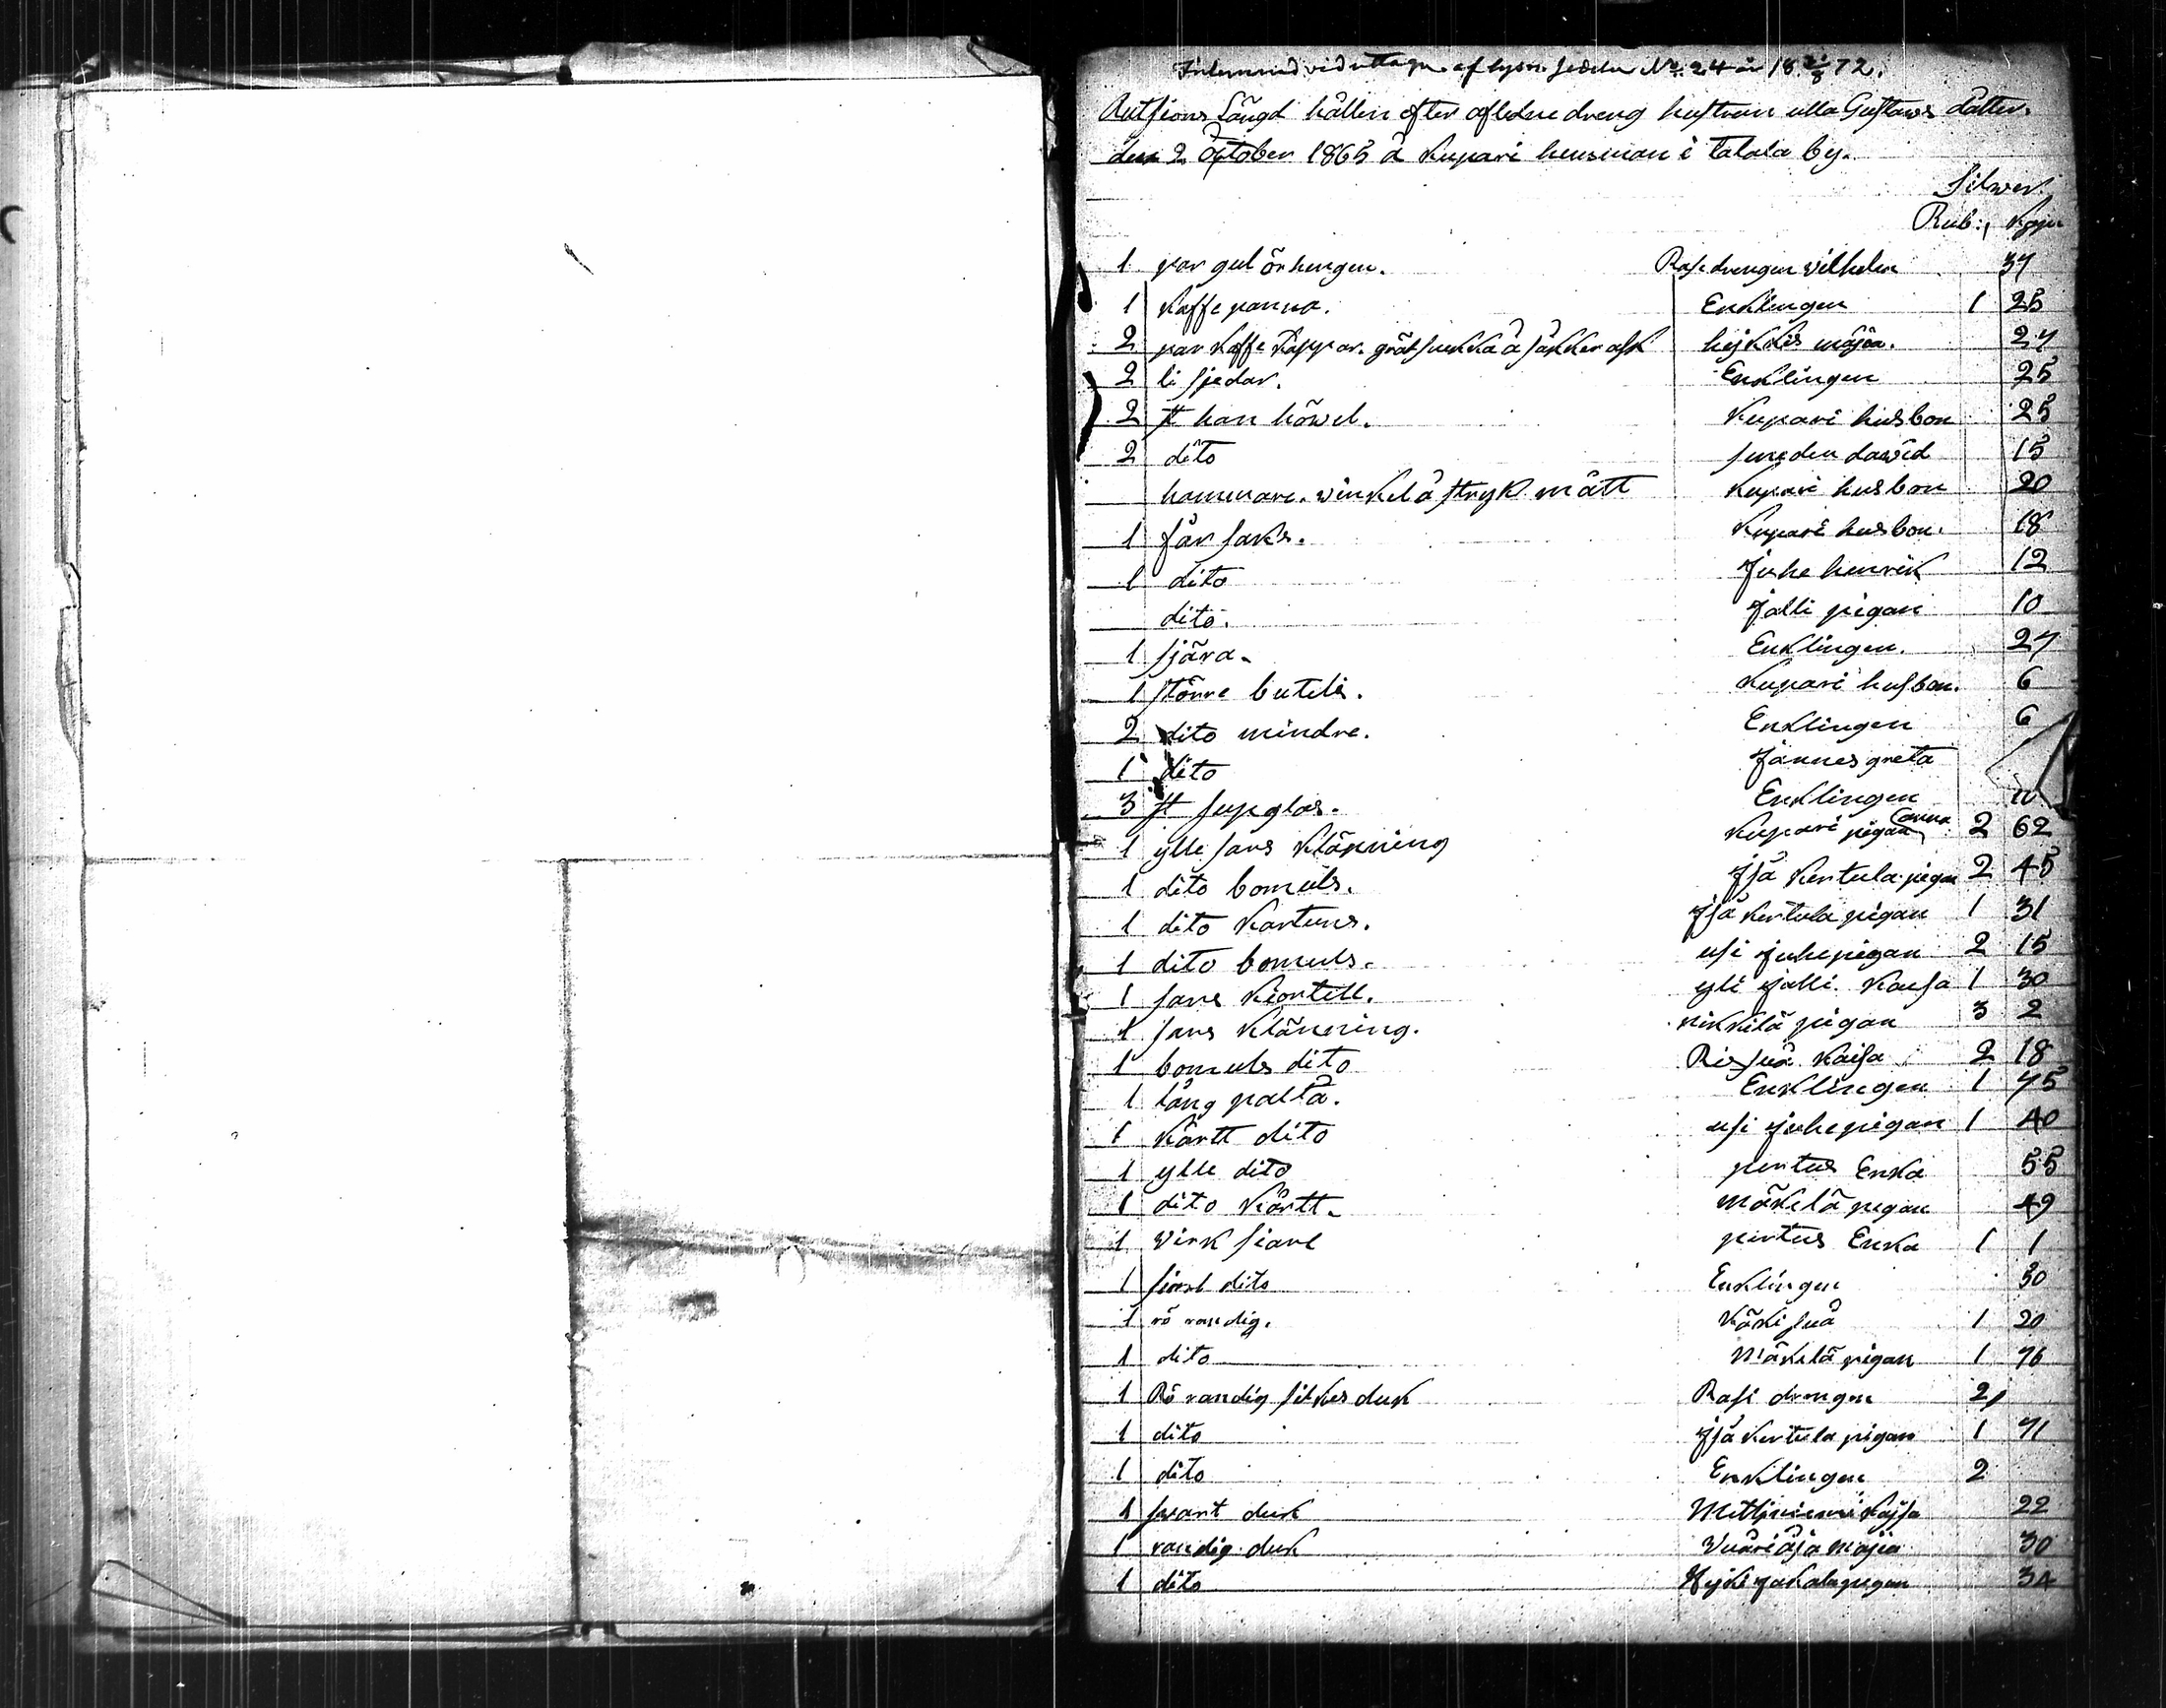 af  № 24 år 18 72.
Auktions Längd hållen efter aflidne dreng hustrun ulla Gustavs dåtter.
den 2 October 1865 å Kupari hemman i Talala by.
Silwer.
Rub:, Kopn
1 par gul örhengen. Rasi drengen vilhelm 37
1 Kaffe panna. Enklingen 1 25
2 par Kaffe Kåppar. å såkker ask majia. 27
2 li sjedar. Enklingen 25
2 st han höwel. Kupari husbon 25
2 dito dawid 15
hammare. winkel å stryk mått Kupari husbon 20
1 får saks. Kupari husbon. 18
1 dito Juhe henrik 12
dito. Jalli pigan 10
1 sjära. Enklingen. 27
1 större butels. Kupari husbon. 6
2 dito mindre. Enklingen 6
1 dito Jannes greta
3 st supglas. Enklingen
1 ylle sars Klänning Kupari pigan anna 2 62
1 dito bomuls. Jså Kertula pigan 2 45
1 dito Kartuns. Jså Kertula pigan 1 31
1 dito bomuls. usi Juhe pigan 2 15
1 sars Kiortell. yli Jalli Kaisa 1 30
1 sars Klänning. nikkilä pigan 3 2
1 bomuls dito Kaisa 2 18
1 lång paltå. Enklingen 1 75
1 Kårtt dito usi Juhe pigan 1 40
1 ylle dito pertus Enka 55
1 dito Kårtt. Mäkelä pigan 49
1 Virk siarl pertus Enka 1 1
1 siarl dito Enklingen 30
1 rö randig. Käki 1 20
1 dito Mäkelä pigan 1 76
1 Rö randig silkes duk Rasi drengen 2,
1 dito Jså Kertula pigan 1 71
1 dito Enklingen 2
1 swart duk Kajsa 22
1 randig duk majia 30
1 dito 34